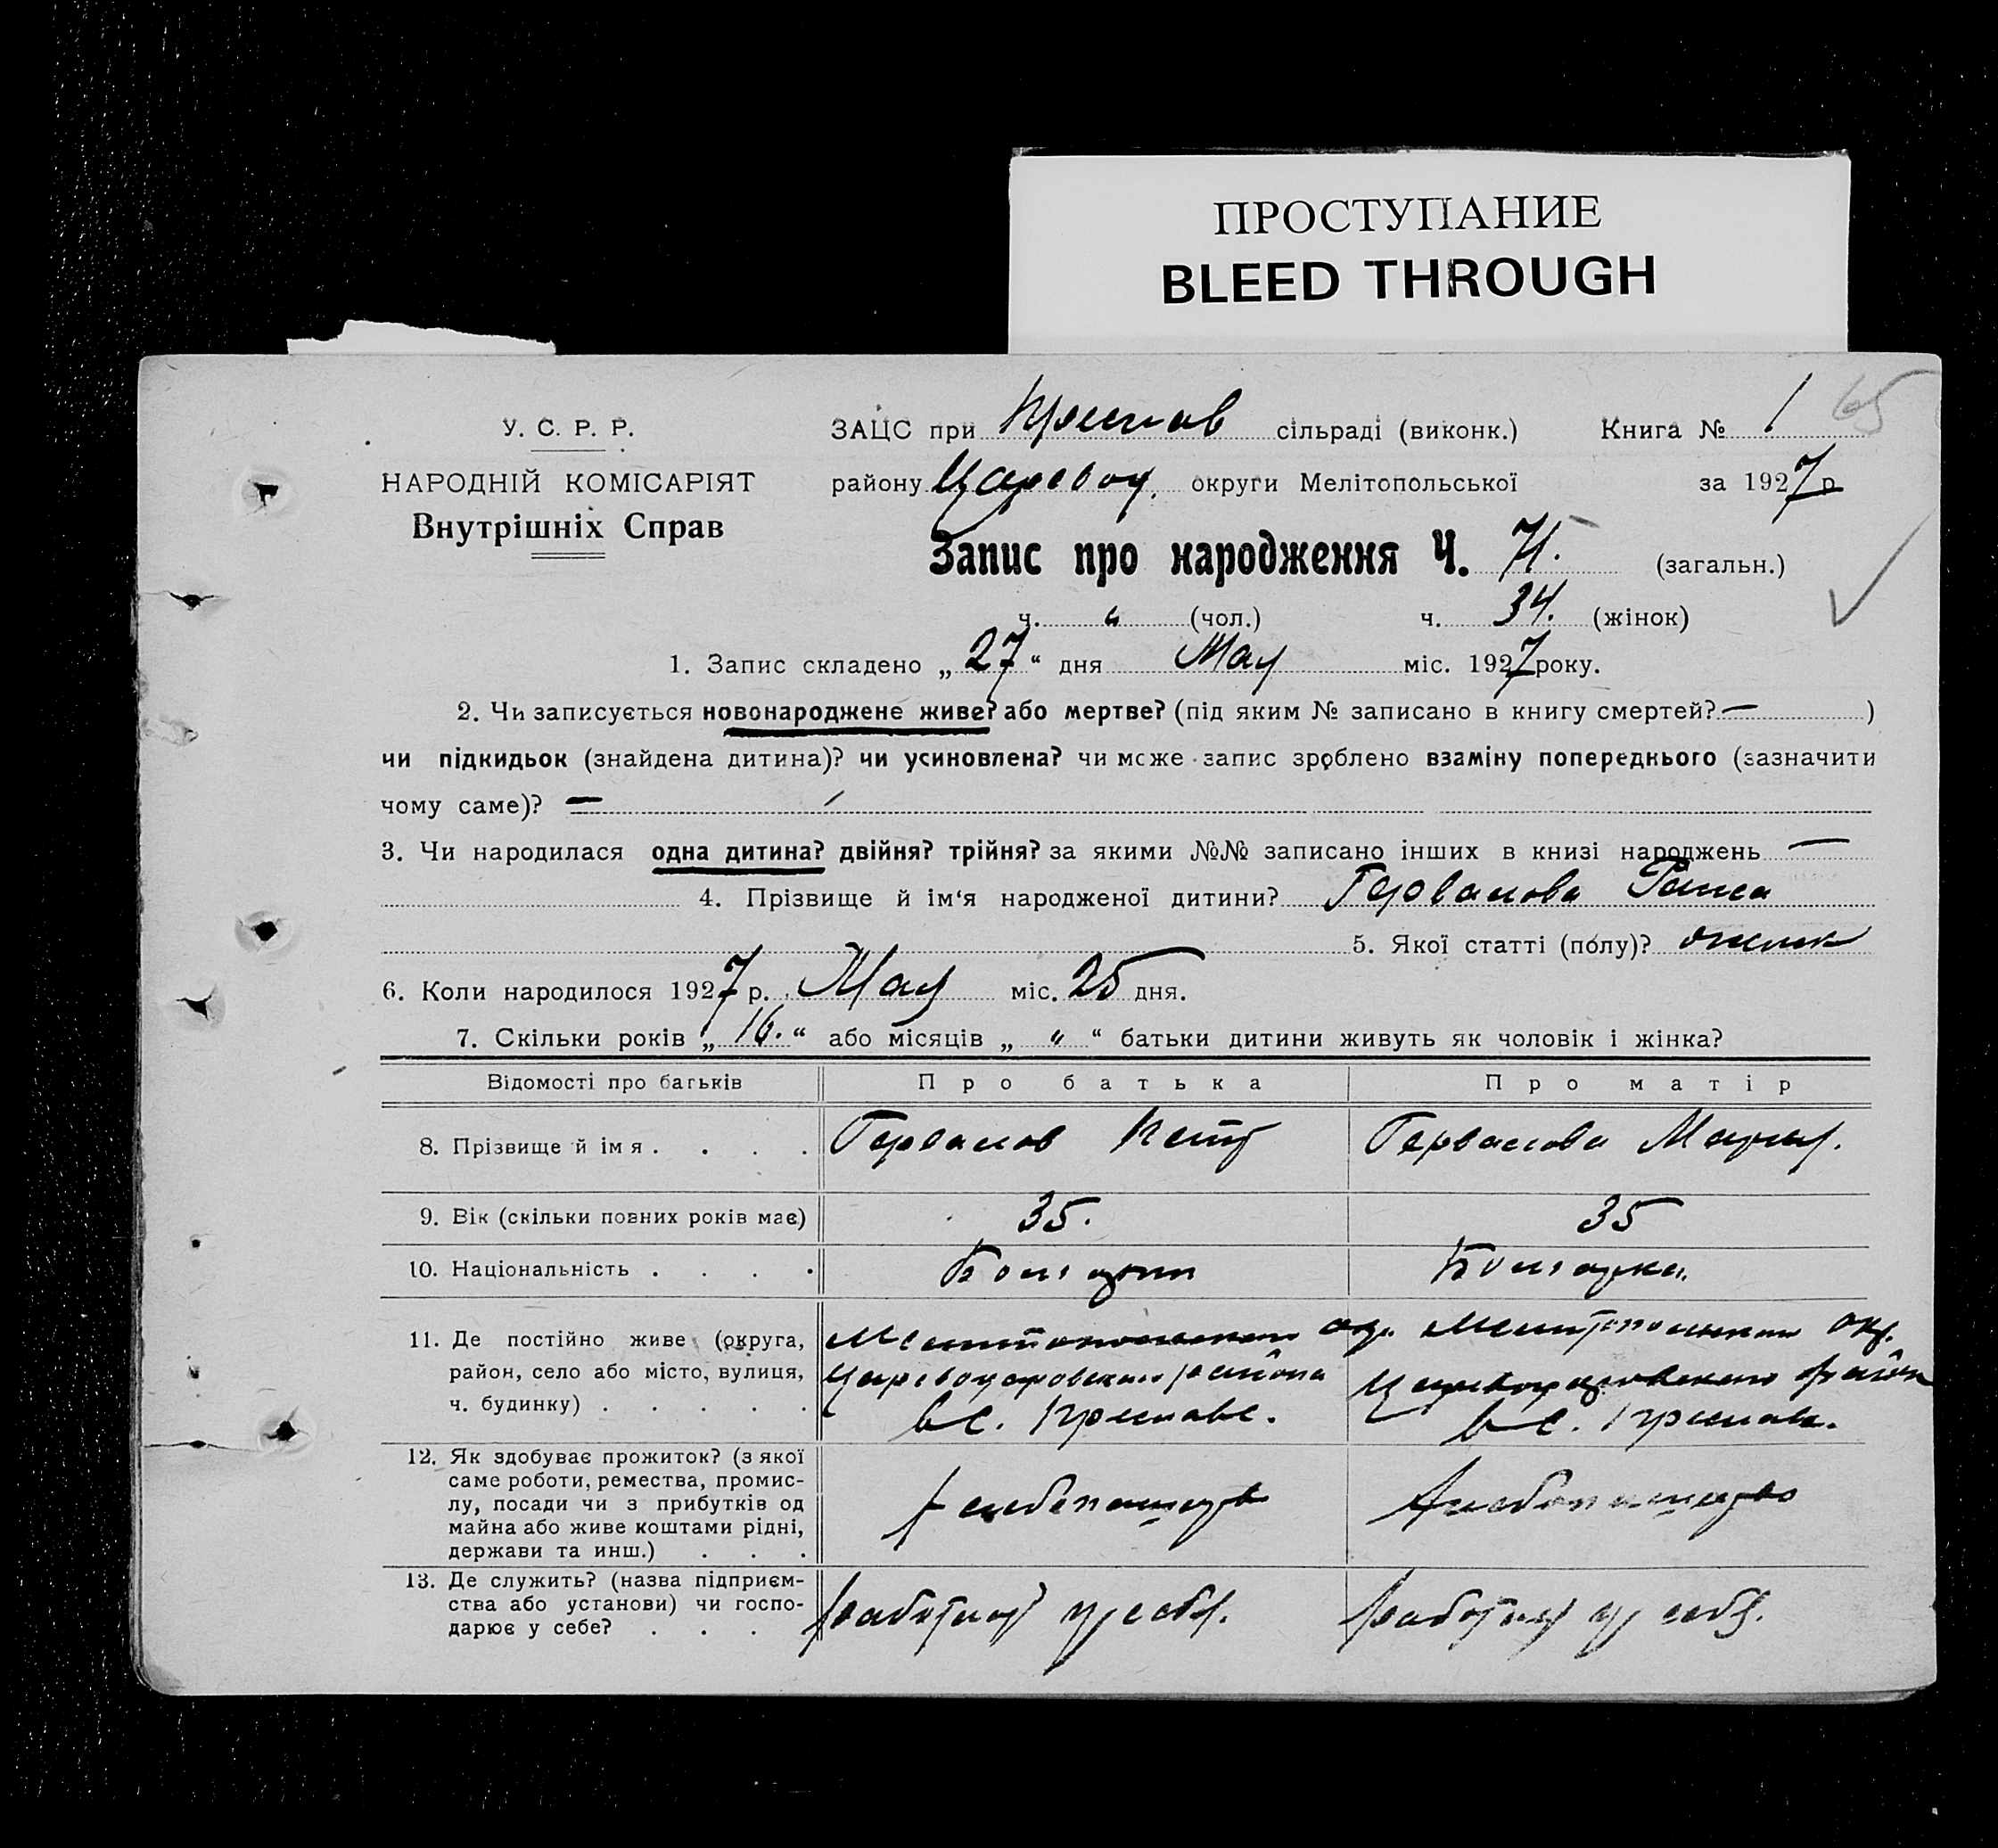 ПРОСТУПАНИЕ
BLEED THROUGH
У. С. Р. Р.
ЗАЦС при Преслав сільраді (виконк.) Книга № 1 65
НАРОДНІЙ КОМІСАРІЯТ
району Царевод. округи Мелітопольської за 1927 р
Внутрішніх Справ
Запис про народження Ч. 71. (загальн.)
ч. „ (чол.) ч. 34. (жінок)
1. Запис складено „27“ дня Мая міс. 1927 року.
2. Чи записується новонароджене живе? або мертве? (під яким № записано в книгу смертей? — )
чи підкидьок (знайдена дитина)? чи усиновлена? чи може запис зроблено взаміну попереднього (зазначити
чому саме)? —
3. Чи народилася одна дитина? двійня? трійня? за якими №№ записано інших в книзі народжень —
4. Прізвище й ім‘я народженої дитини? Герванова Раиса
5. Якої статті (полу)?
6. Коли народилося 1927 р. Мая міс. 25 дня.
7. Скільки років „16.“ або місяців „ „ “ батьки дитини живуть як чоловік і жінка?
Відомості про батьків Про батька Про матір
8. Прізвище й імя . . . . Герванов Петр Герванова Мария.
9. Вік (скільки повних років має) 35. 35
10. Національність . . . . Болгарин Болгарка.
11. Де постійно живе (округа, Мелитопольского окр. Мелитопольского окр.
район, село або місто, вулиця, Цареводаровского района Цареводаровского район
ч. будинку) . . . . . в с. Преславе. в с. Преслав.
12. Як здобуває прожиток? (з якої
саме роботи, ремества, промис-
лу, посади чи з прибутків од хлебопашество хлебопашество
майна або живе коштами рідні,
держави та инш.) . . .
13. Де служить? (назва підприєм-
ства або установи) чи госпо- работает у себя. работает у себя.
дарює у себе? . . .